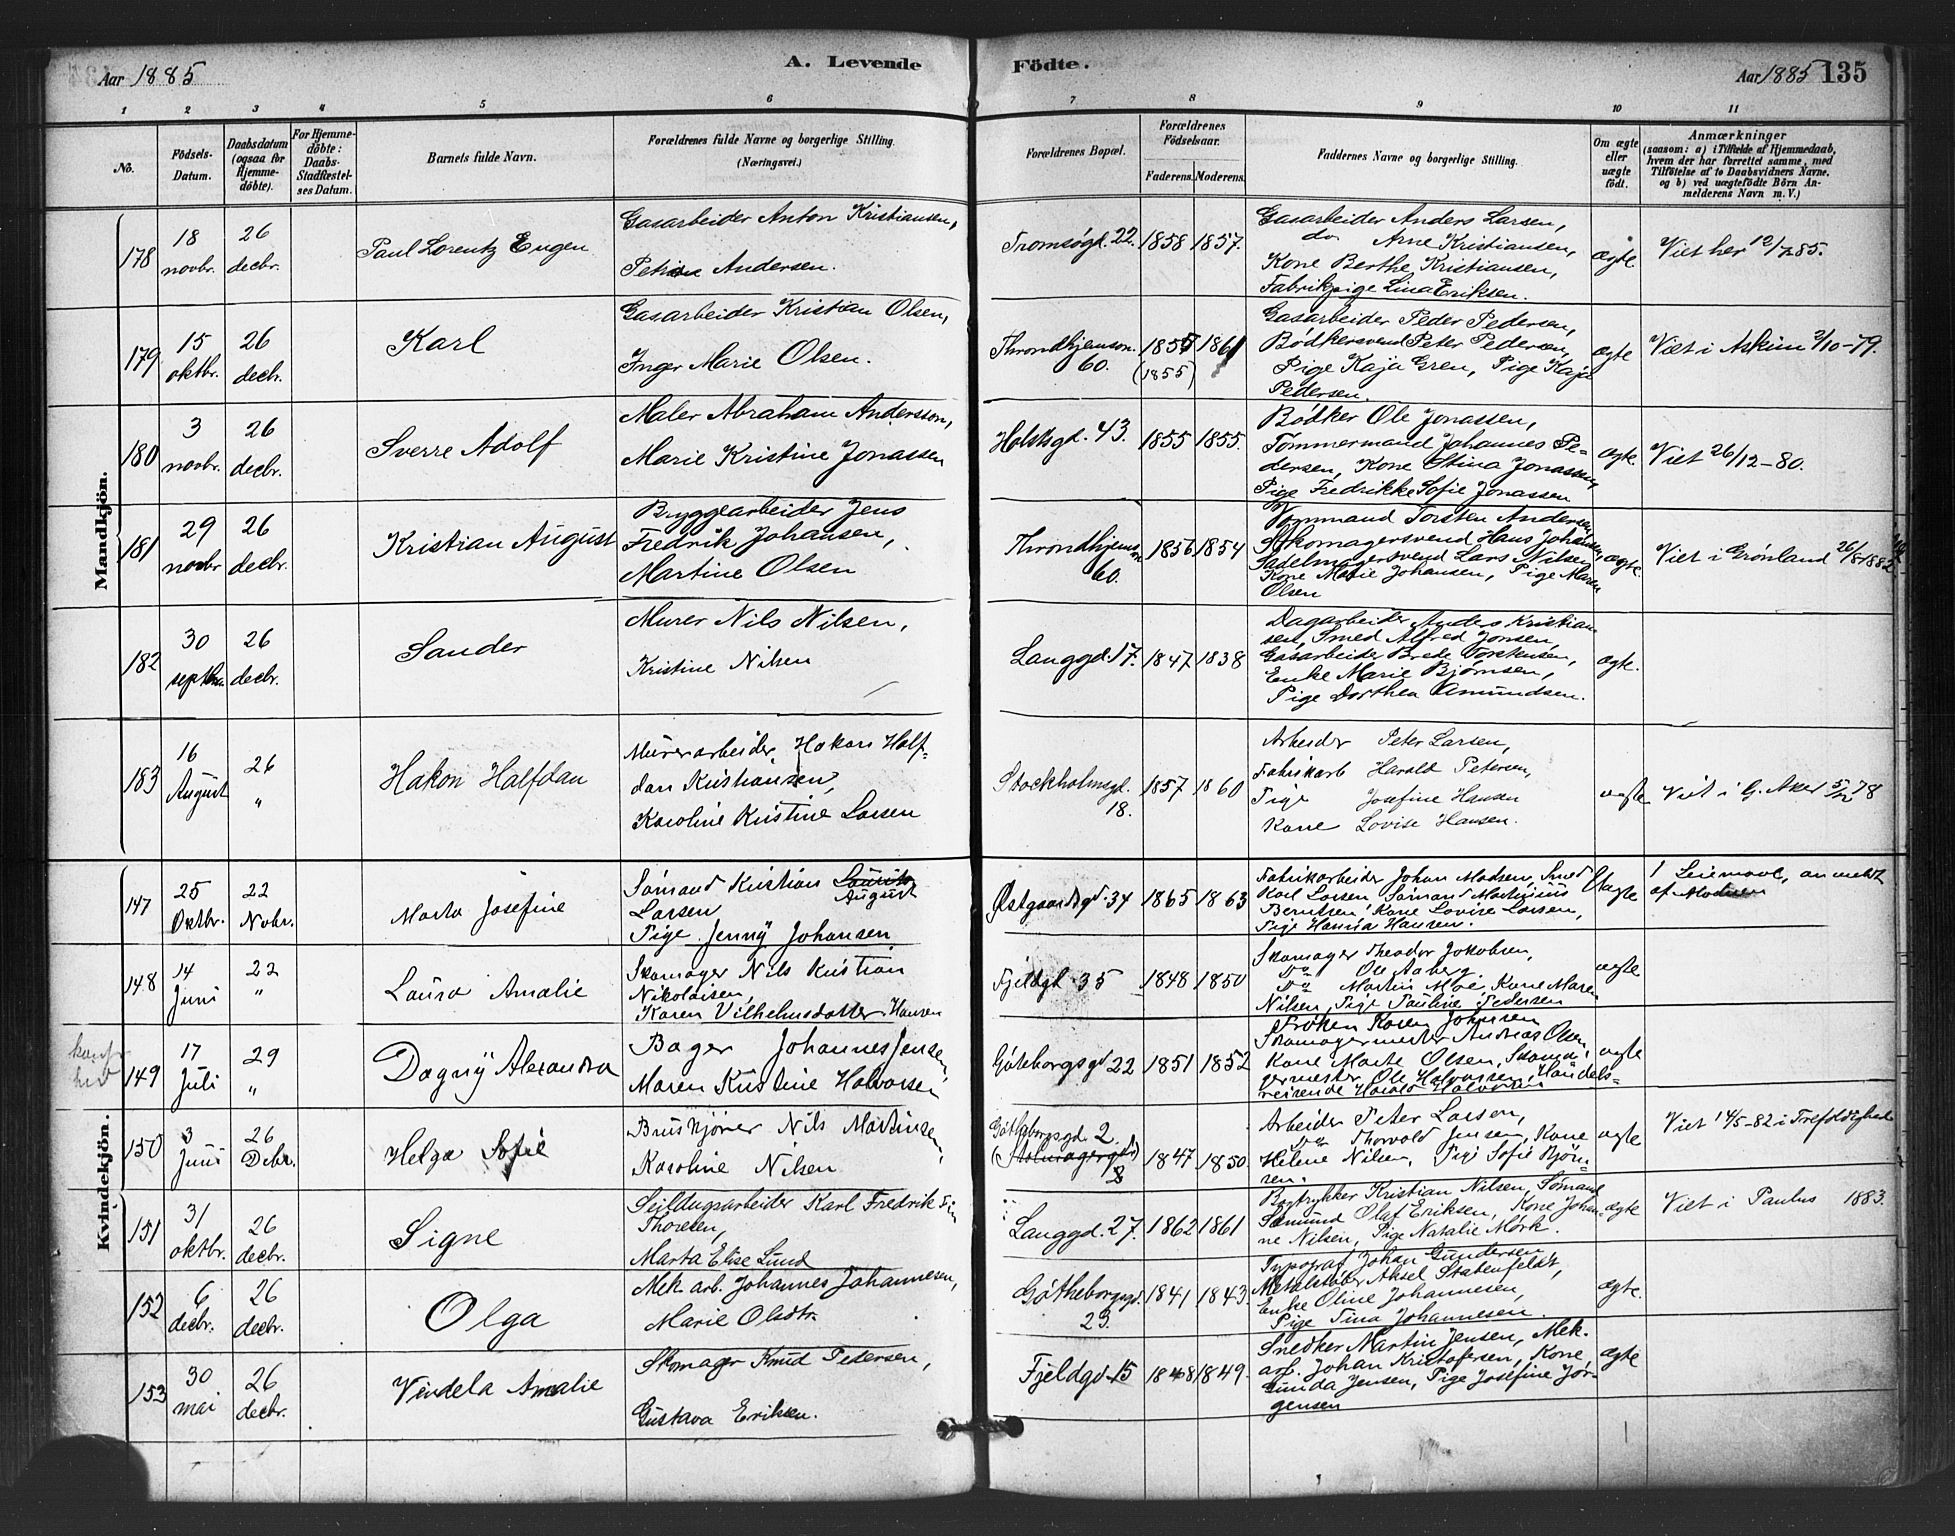 Aar 1885
A. Levende
Födte.
Aar 1885 135
1 2 3 4 5 6 7 8 9 10 11
No.
Födsels-Datum.
Daabsdatum (ogsaa for Hjemme-döbte).
For Hjemme-döbte: Daabs-Stadfæstel-ses Datum.
Barnets fulde Navn.
Forældrenes fulde Navne og borgerlige Stilling. (Næringsvei.)
Forældrenes Bopæl.
Forældrenes Födselsaar.
Faderens. Moderens.
Faddernes Navne og borgerlige Stilling.
Om ægte eller uægte födt.
Anmærkninger
(saasom: a) i Tilfælde af Hjemmedaab, hvem der har forrettet samme, med Tilföielse af to Daabsvidners Navne, og b) ved uægtefödte Börn An-melderens Navn m. V.)
Mandkjön.
178 18 novbr. 26 decbr. Paul Lorentz Eugen
Gasarbeider Anton Kristiansen,
Petrine Andersen.
Tromsøgd. 22. 1858 1857.
Gasarbeider Anders Larsen,
do Arne Kristiansen,
Kone Berthe Kristiansen,
Fabrikpige Lina Eriksen.
ægte. Viet her 12/7 85.
179. 15 oktbr. 26 decbr. Karl
Gasarbeider Kristian Olsen,
Inger Marie Olsen.
Throndhjemsv. 60. 1857 (1855) 1861
Gasarbeider Peder Pedersen,
Bødkersvend Peter Pedersen,
Pige Kaja Gren, Pige Kaja
Pedersen.
ægte Viet i Askim 2/10-79.
180 3 novbr. 26 decbr. Sverre Adolf
Maler Abraham Andersson,
Marie Kristine Jonassen
Holstsgd. 43. 1855 1855.
Bødker Ole Jonassen,
Tømmermand Johannes Pe-
dersen, Kone Stina Jonassen,
Pige Fredrikke Sofie Jonassen
ægte. Viet 26/12-80.
181 29 novbr 26 decbr. Kristian August
Bryggearbeider Jens
Fredrik Johansen,
Martine Olsen
Throndhjemsv. 60. 1856 1854
Tommand Torsten Andersen,
Skomagersvend Hans Johansen,
Sadelmagersvend Lars Nilsen,
Kone Marie Johansen, Pige Maren
Olsen
ægte. Viet i Grønland 26/8 1882.
182 30 septbr. 26 decbr. Sander
Murer Nils Nilsen,
Kristine Nilsen
Langgd. 17. 1847 1838
Dagarbeider Anders Kristian-
sen, Smed Alfred Jonsen,
Gasarbeider Brede Torstensen,
Enke Marie Bjørnsen,
Pige Dorthea Amundsen.
ægte.
183 16 August 26 " Hakon Halfdan
Murerarbeider Hakon Half-
dan Kristiansen,
Karoline Kristine Larsen
Stockholmsgd. 18. 1857 1860
Arbeider Peter Larsen,
Fabrikarb Harald Petersen,
Pige Josefine Hansen
Kone Lovise Hansen.
ægte Viet i G. Aker 5/12 78
Kvindekjön.
147 25 Oktbr. 22 Novbr. Marta Josefine
Sømand Kristian Laurits
August
Larsen
Pige Jenny Johansen
Østgaardsgd 34 1865 1863
Fabrikarbeider Johan Madsen, Smed
Karl Larsen, Sømand Martinius
Berntsen, Kone Lovise Larsen,
Pige Hanna Hansen.
Uægte 1 Leiermaal, anmeldt
af Moderen
148 14 Juni 22 " Laura Amalie
Skomager Nils Kristian
Nikolaisen,
Karen Vilhelmsdatter Hansen
Fjeldgd. 35 1848 1850
Skomager Theodor Jakobsen,
Do Ole Aaberg
Do Martin Moe, Kone Maren
Nilsen, Pige Pauline Pedersen
ægte
149 17 Juli 29 " Dagny Alexandra
Bager Johannes Jensen,
Maren Kristine Halvorsen
Göteborgsgd 22 1851 1852
Frøken Karen Johansen
Skomagermester Andreas Olsen,
Kone Marte Olsen, Skoma-
germester Ole Halvorsen, Handels-
reisende Harald Halvorsen
ægte
150 3 Juni 26 Debr. Helga Sofie
Bruskjører Nils Martinsen,
Karoline Nilsen
Gøtheborgsgd. 2. 1847 1850.
Arbeider Peter Larsen,
Do Thorvald Jensen, Kone
Helene Nilsen, Pige Sofie Bjøn-
sen.
ægte Viet 14/5-82 i Trefoldighed
151 31 oktbr. 26 decbr. Signe
Seildugsarbeider Karl Fredrik
Thoresen,
Marta Elise Lund
Langgd. 27. 1862 1861
Bogtrykker Kristian Nilsen, Sømand
Olaf Eriksen, Kone Johan-
ne Nilsen, Pige Natalie Mørk.
ægte Viet i Paulus 1883.
152 6 decbr. 26 decbr. Olga
Mek. arb. Johannes Johannesen,
Marie Olsdtr.
Gøtheborgsgd. 23. 1841 1843.
Typograf Johan Gundersen
Metalstøber Aksel Statenfeldt,
Enke Oline Johannesen,
Pige Tina Johannesen.
ægte.
153 30 mai 26 decbr. Vindela Amalie
Skomager Knud Petersen,
Gustava Eriksen.
Fjeldgd. 15 1848 1849.
Snedker Martin Jensen, Mek.
arb. Johan Kristofersen, Kone
Gunda Jensen, Pige Josefine Jør-
gensen
ægte